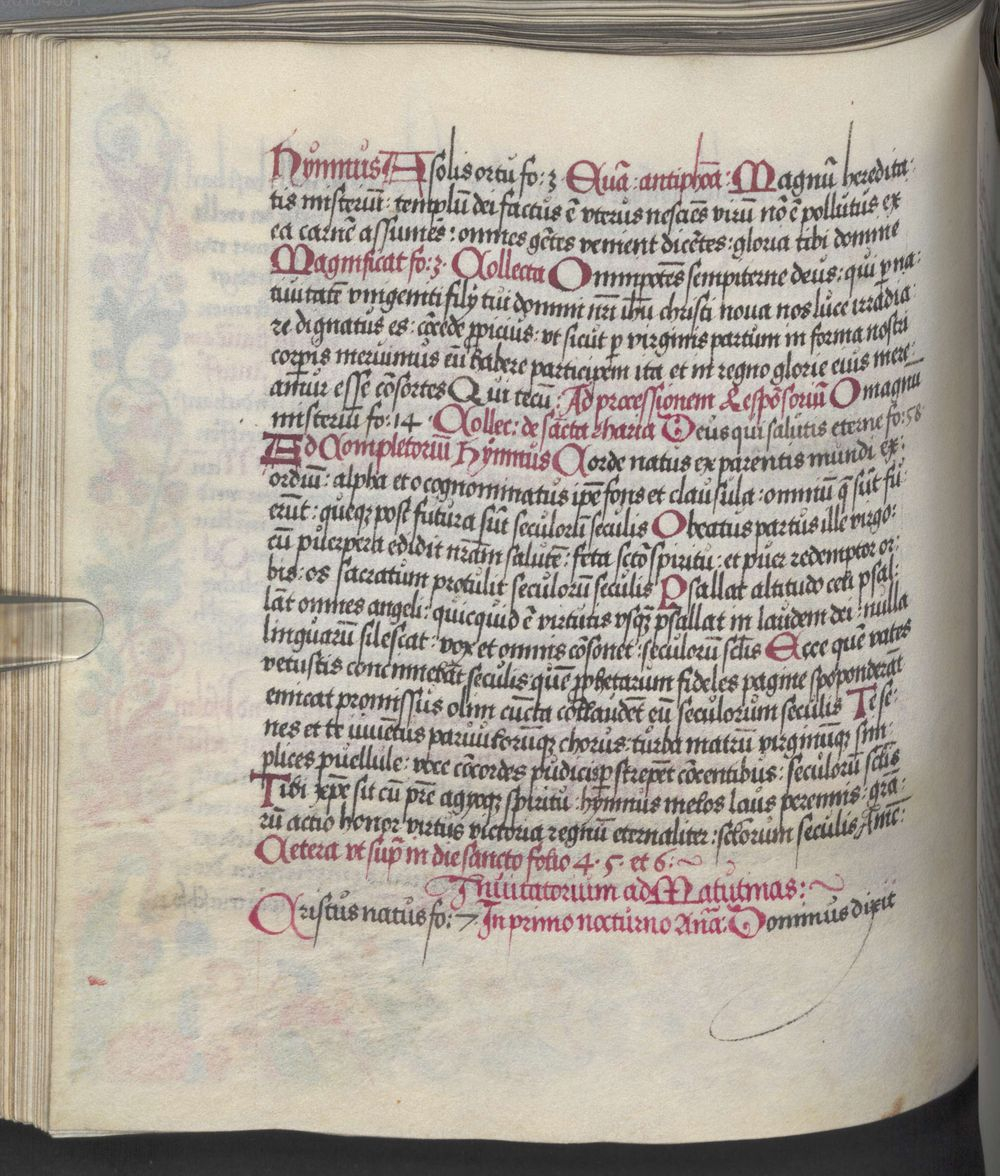 Hÿmnus A solis ortu fo: 3 Euā: antiphōa: Magnū heredita:
tis misteriū: templū dei factus ē vterus nesciēs virū nō ē pollutus ex
ea carnē assumēs: omnes gētes venient dicētes: gloria tibi domine
Magnificat fo: 3: Collecta Omnipotēs sempiterne deus: qui p na:
tiuitatē vnigeniti filÿ tui domini nr̄i ih̄u christi noua nos luce irradia:
re dignatus es: cōcede ꝓpicius: vt sicut ꝑ virginis partum in forma nostri
corpīs meruimus eū habere participem ita et in regno glorie eius mere:
amur esse cōsortes Qui tecū: Ad processionem Respōsoriū O magnū
misteriū fo: 14: Collec: de sācta Maria Deus qui salutis eterne fo: 58
Ad Completoriū Hÿmnus Corde natus ex parentis mundi ex:
ordiū: alpha et o cognominatus ip̄e fons et clausula: omniū q̄ sūt fu
erūt: queqꝫ post futura sūt seculorū seculis O beatus partus ille virgo:
cū puerpera edidit nr̄am salutē: feta sctō spiritu: et puer redemptor or:
bis: os sacratum protulit seculorū seculis Psallat altitudo celi psal:
lāt omnes angeli: quicquid ē virtutis vsqꝫ psallat in laudem dei: nulla
linguarū silescat: vox et omnis cōsonet: seculorū sclīs Ecce quē vates
vetustis concinnebāt seculis quē ꝓphetarum fideles pagine spoponderāt
emicat promissus olim cūcta collaudēt eū seculorum seculis Te se:
nes et te iuuētus paruulorūqꝫ chorus: turba matrū virginūqꝫ sim:
plices puellule: voce cōcordes pudicis ꝑstrepēt cōcentibus: seculorū sclīs
Tibi xp̄e sit cū pr̄e agyoqꝫ spiritu: hÿmnus melos laus perennis: gr̄a:
rū actio honor virtus victoria regnū eternaliter: sclorum seculis Amē:
Cetera vt supͣ in die sancto folio 4· 5 et 6:~
Inuitatorium ad Matutinas:~
Cristus natus fo: 7 In primo nocturno Anā: Dominus dixit